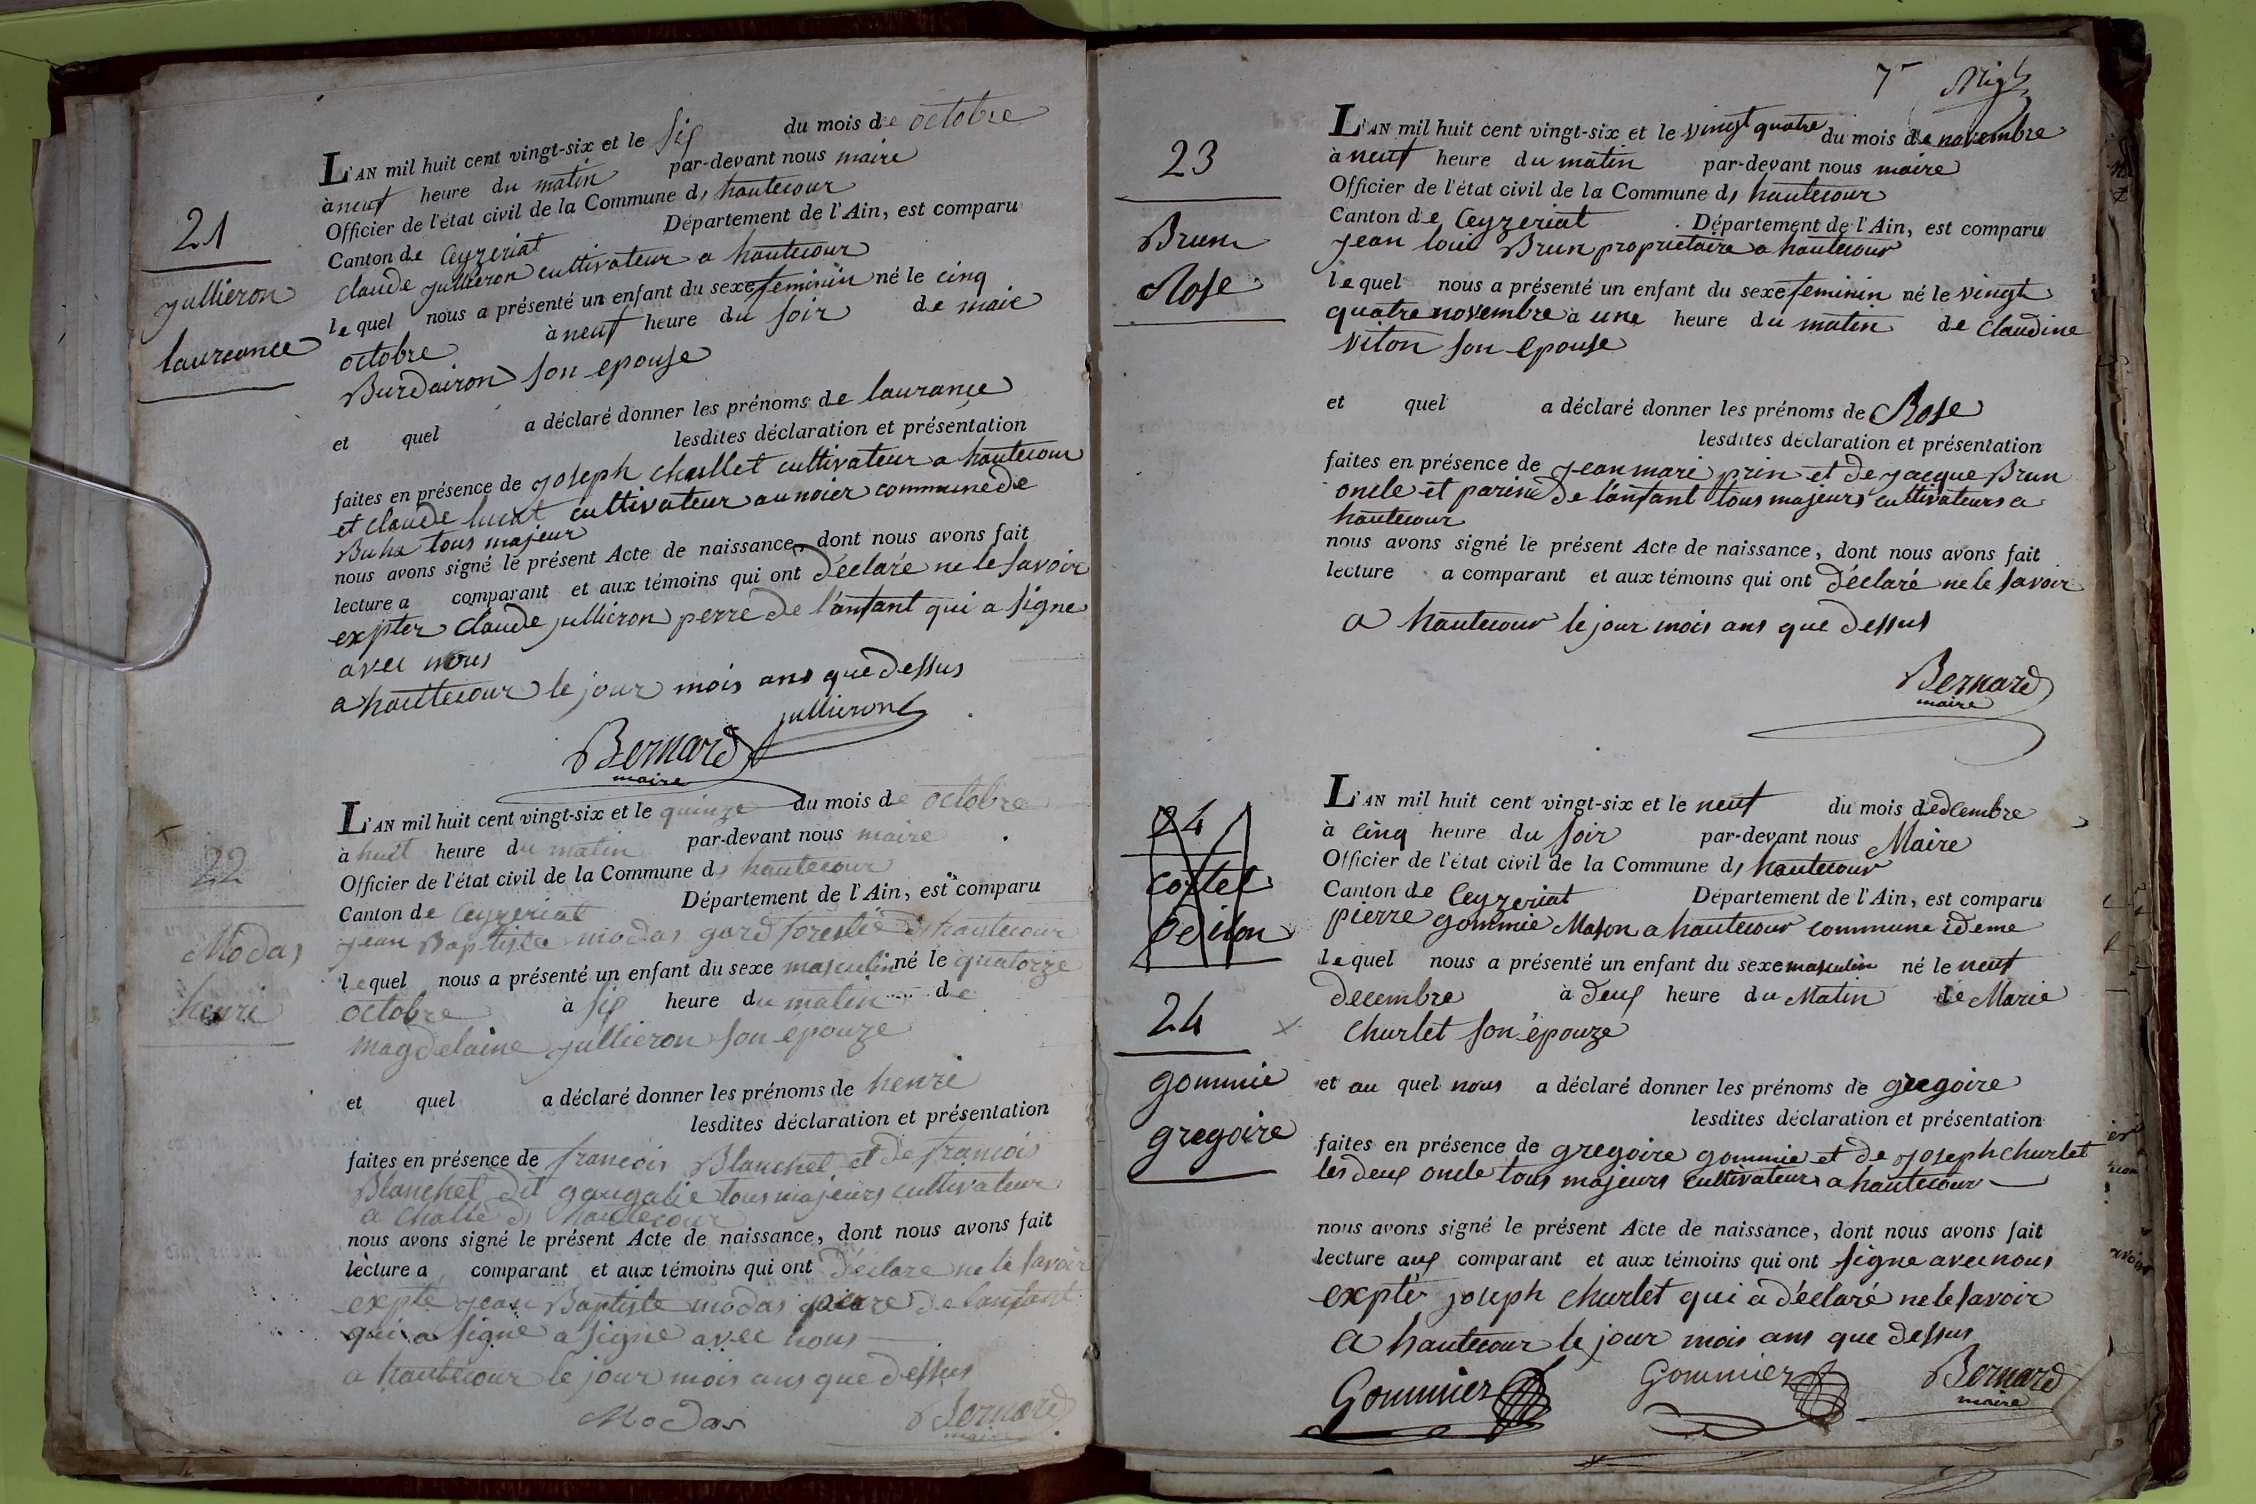 21
jullieron
laurance
L'AN mil huit cent vingt-six et le six du mois de octobre
à neuf heure du matin par-devant nous maire
Officier de l'état civil de la Commune d, hautecour
Canton de Ceyzeriat Département de l'Ain, est comparu
claude jullieron cultivateur a hautecour
lequel nous a présenté un enfant du sexe feminin né le cinq
octobre à neuf heure du soir de marie
Burdairon son epouse
et quel a déclaré donner les prénoms de laurance
lesdites déclaration et présentation
faites en présence de joseph chullet cultivateur a hautecour
et claude lucat cultivateur au noier commune de
Buha tous majeur
nous avons signé le présent Acte de naissance, dont nous avons fait
lecture a comparant et aux témoins qui ont déclaré ne le savoir
expter claude jullieron perre de l'anfant qui a signe
avec nous
a hautecour le jour mois ans que dessus
jullieron
Bernard
maire
22
Modas
henri
L'AN mil huit cent vingt-six et le quinze du mois de octobre
à huit heure du matin par-devant nous maire
Officier de l'état civil de la Commune d, hautecour
Canton de Ceyzeriat Département de l'Ain, est comparu
jean Baptiste modas gard forestié d hautecour
lequel nous a présenté un enfant du sexe masculin né le quatorze
octobre à six heure du matin de
magdelaine jullieron son epouze
et quel a déclaré donner les prénoms de henri
lesdites déclaration et présentation
faites en présence de francois Blanchet et de francois
Blanchet dit gaugalie tous majeurs cultivateur
a challe d hautecour
nous avons signé le présent Acte de naissance, dont nous avons fait
lecture a comparant et aux témoins qui ont déclare ne le savoir
expte jean Baptiste modas pere de lanfant
qui a signe a signe avec nous
a hautecour le jour mois ans que dessus
Modas Bernard
maire
7
23
Brun
Rose
L'AN mil huit cent vingt-six et le vingt quatre du mois de novembre
à neuf heure du matin par-devant nous maire
Officier de l'état civil de la Commune d, hautecour
Canton de Ceyzeriat Département de l'Ain, est comparu
jean loui Brun proprietaire a hautecour
lequel nous a présenté un enfant du sexe feminin né le vingt
quatre novembre à une heure du matin de Claudine
viton son epouse
et quel a déclaré donner les prénoms de Rose
lesdites déclaration et présentation
faites en présence de jean mari prin et de jacque Brun
oncle et parine de l'anfant tous majeurs cultivateurs a
hautecour
nous avons signé le présent Acte de naissance, dont nous avons fait
lecture a comparant et aux témoins qui ont déclaré ne le savoir
a hautecour le jour mois ans que dessus
Bernard
maire
24
costel
odilon
24
gommie
gregoire
L'AN mil huit cent vingt-six et le neuf du mois de dcembre
à cinq heure du soir par-devant nous Maire
Officier de l'état civil de la Commune d, hautecour
Canton de Ceyzeriat Département de l'Ain, est comparu
pierre gommie Mason a hautecour commune ideme
lequel nous a présenté un enfant du sexe masculin né le neuf
decembre à deux heure du Matin de Marie
churlet son épouze
et au quel nous a déclaré donner les prénoms de gregoire
lesdites déclaration et présentation
faites en présence de gregoire gommie et de joseph churlet
les deux oncle tous majeurs cultivateurs a hautecour
nous avons signé le présent Acte de naissance, dont nous avons fait
lecture aux comparant et aux témoins qui ont signe avec nous
expter joseph churlet qui a déclaré ne le savoir
a hautecour le jour mois ans que dessus
Gommier Gommier Bernard
maire